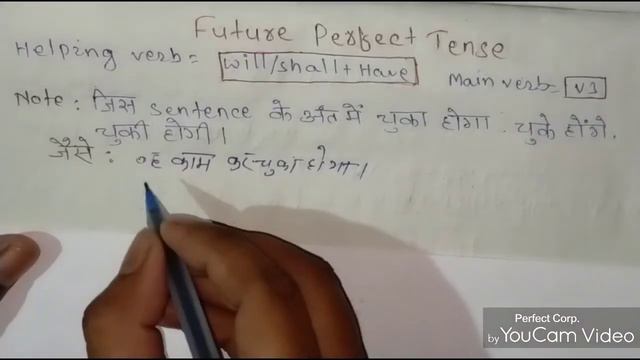 Future Perfect Tense
Helping verb = will/shall + Have
Main verb = V3
Note : जिस sentence के अंत में चुका होगा. चुके होंगे.
चुकी होगी।
जैसे : वह काम कर चुका होगा।
Perfect Corp.
by YouCam Video